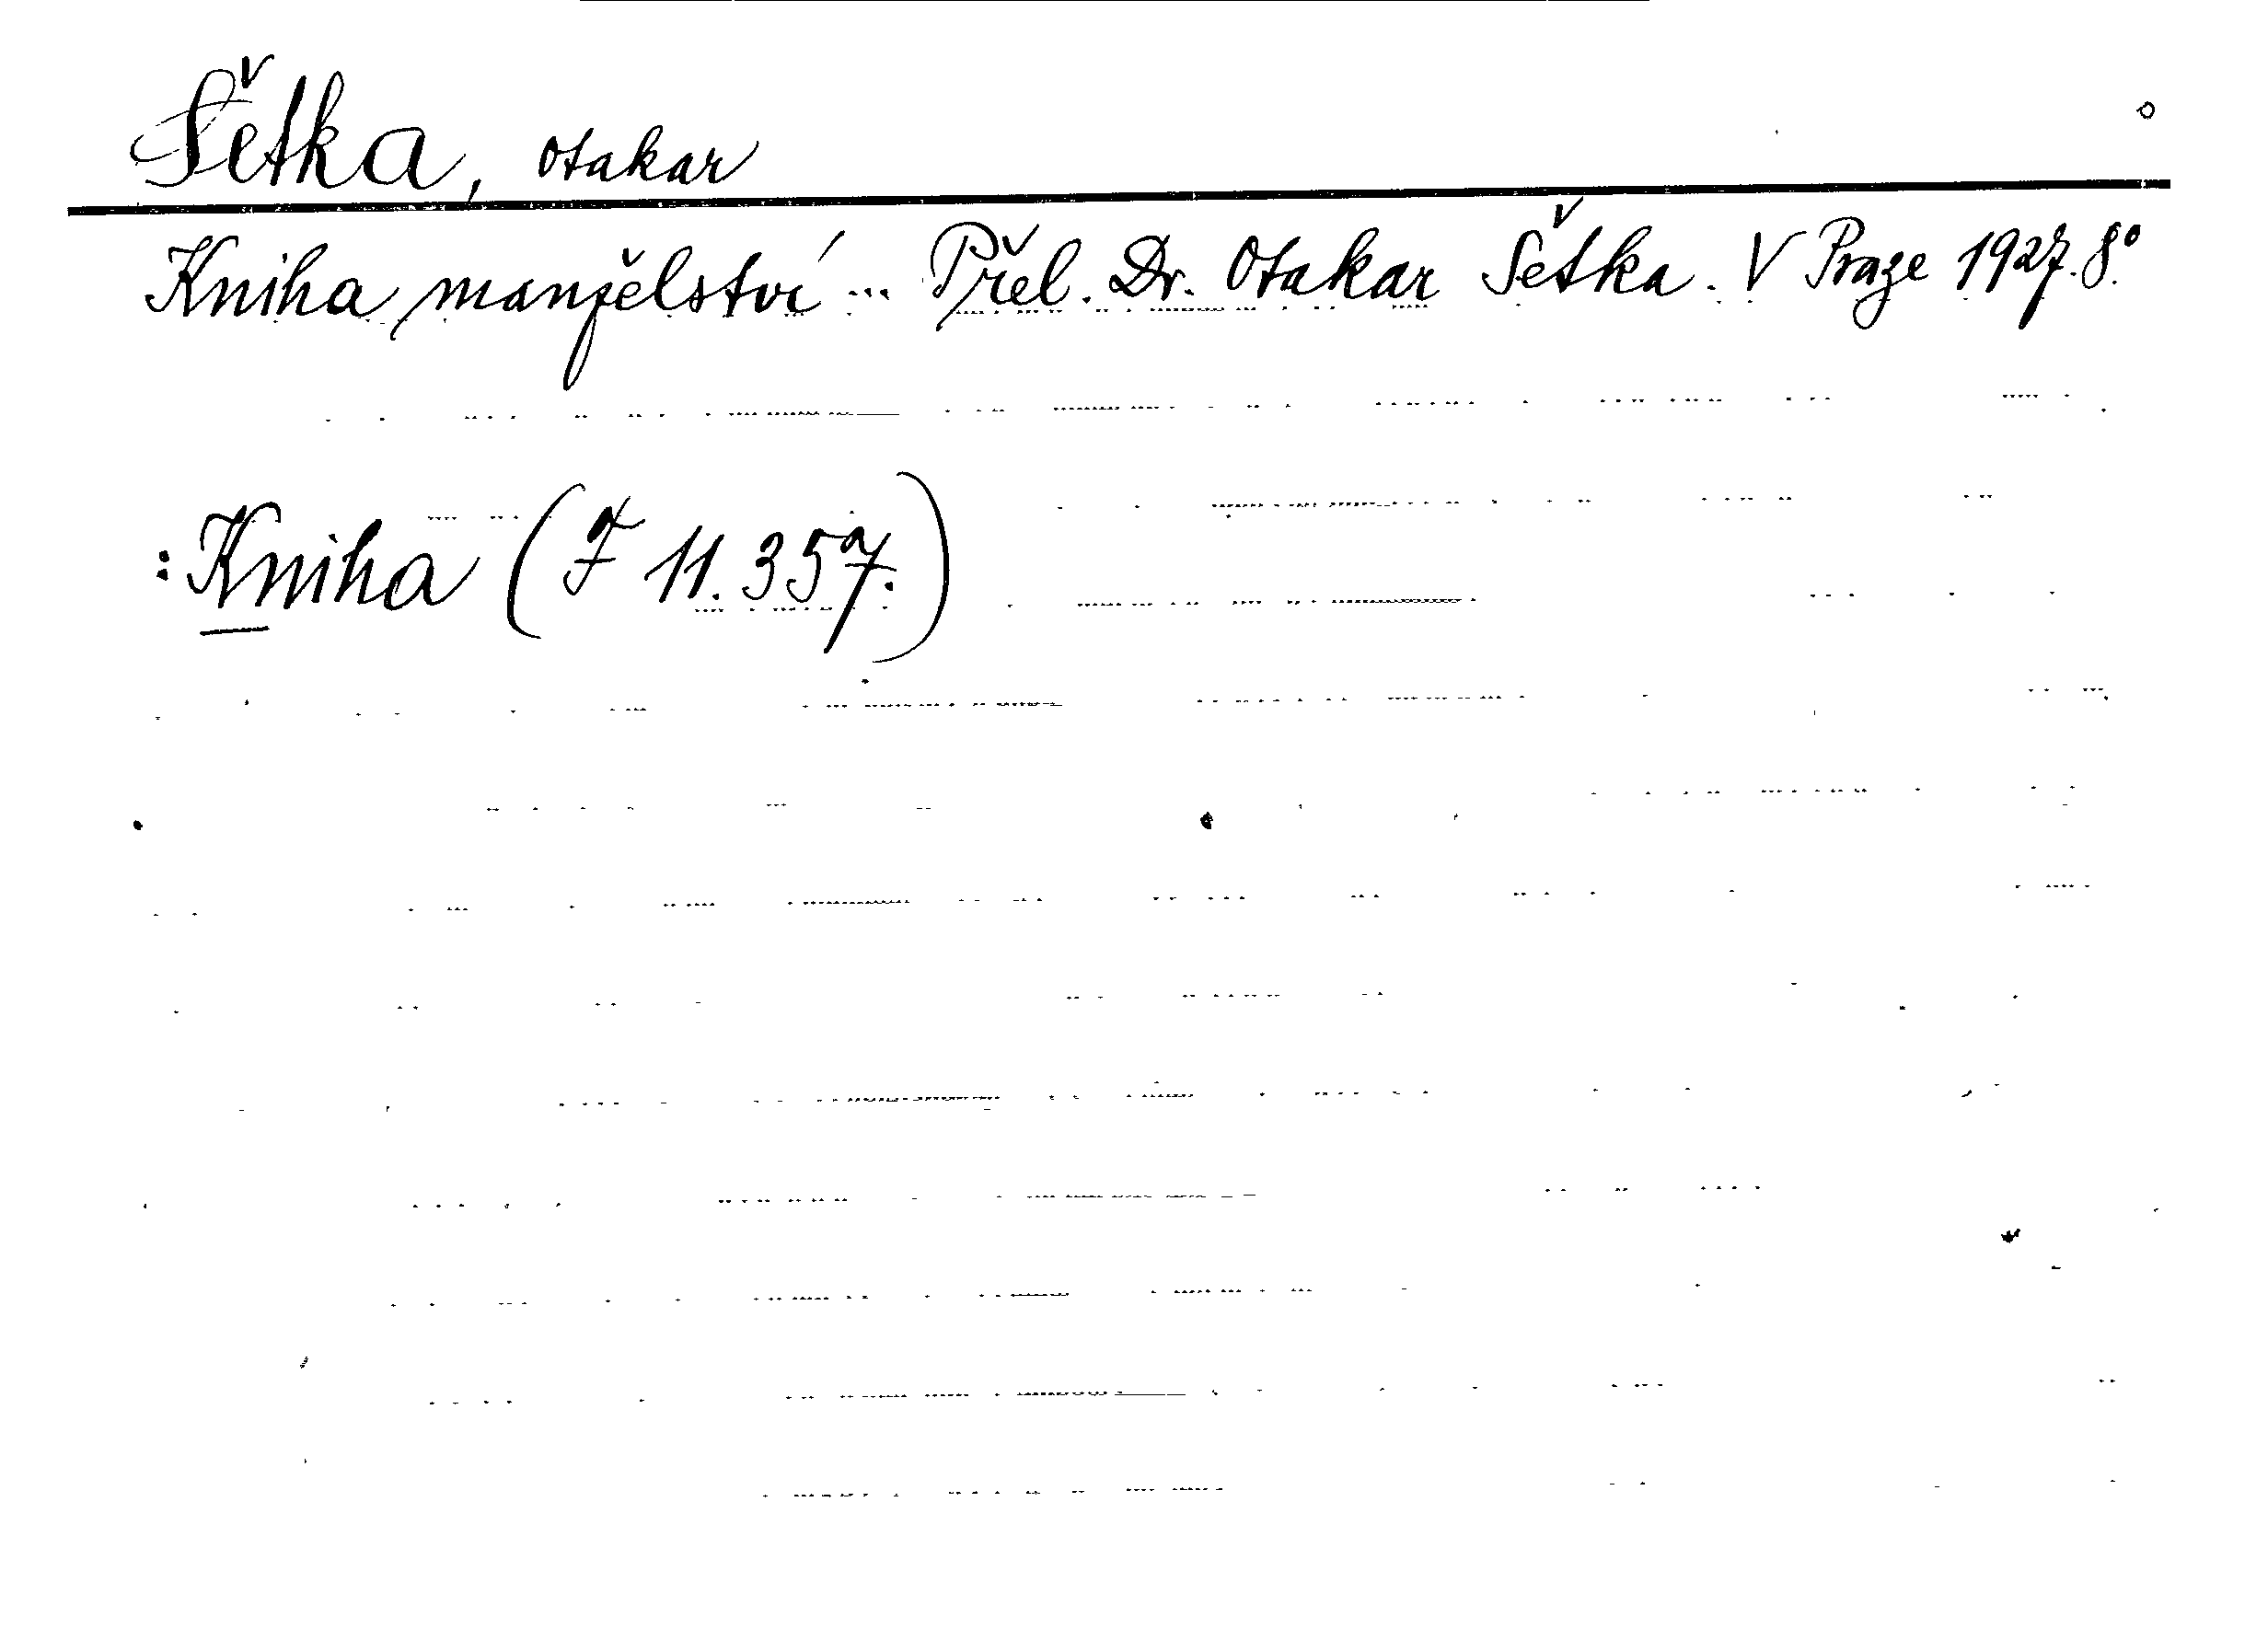 Šetka, Otakar
Kniha manželství ... Přel. Dr. Otakar Šetka. V Praze 1927. 8°
: Kniha (F 11.357.)